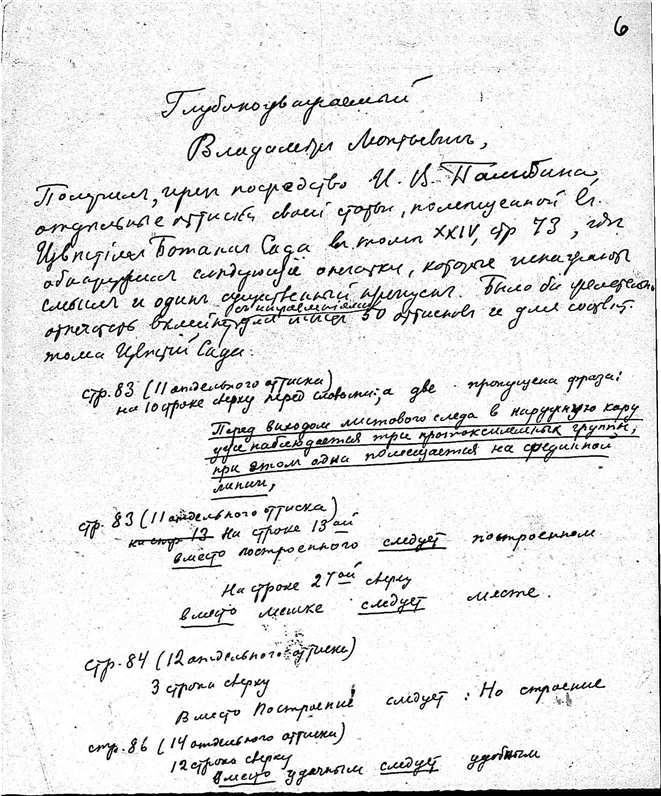 6
Глубокоуважаемый
Владимир Леонтьевич,
Получил, через посредство И. В. Палибина,
отдельные оттиски своей статьи, помещенной в
Ботанич Сада в томе XXIV, стр 73, где
обнаружил следующие опечатки, которые
смысл и один существенный пропуск. Было бы желательно
отпечатать с исправлениями для моих 50 оттисков и для соответ.
тома Сада.
стр. 83 (11 отдельного оттиска)
на 10 строке сверху перед словами: а две - пропущена фраза:
Перед выходом листового следа в наружную кору
уже наблюдается три протоксилемных группы,
при этом одна помещается на срединной
линии,
стр. 83 (11 отдельного оттиска)
на стр 13 На строке 13 ой
вместо построенного следует построенном
На строке 27 ой сверху
вместо мешке следует месте.
стр. 84 (12 отдельного оттиска)
3 строка сверху
Вместо Построение следует: Но строение
стр. 86 (14 отдельного оттиска)
12 строка сверху
вместо удачным следует удобным